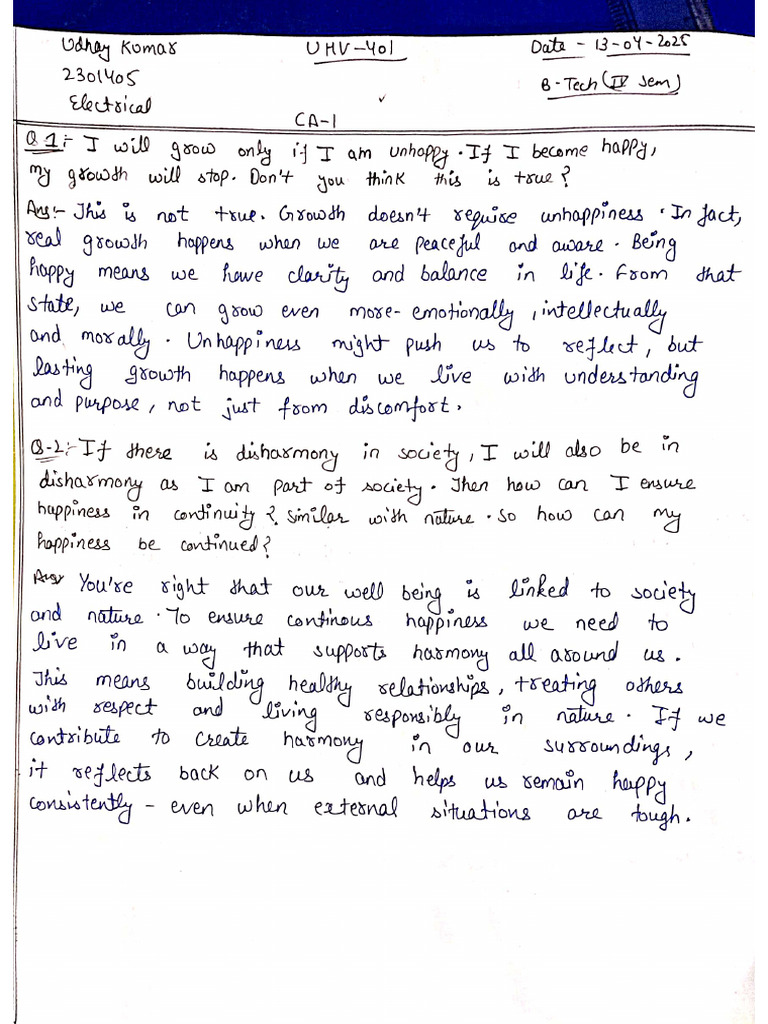 Udhay Kumar UHV-401 Date - 13-04-2025
2301405 B-Tech (IV Sem)
Electrical
CA-1
Q 1:- I will grow only if I am unhappy. If I become happy,
my growth will stop. Don't you think this is true?
Ans:- This is not true. Growth doesn't require unhappiness. In fact,
real growth happens when we are peaceful and aware. Being
happy means we have clarity and balance in life. From that
state, we can grow even more- emotionally, intellectually
and morally. Unhappiness might push us to reflect, but
lasting growth happens when we live with understanding
and purpose, not just from discomfort.
Q-2:- If there is disharmony in society, I will also be in
disharmony as I am part of society. Then how can I ensure
happiness in continuity? Similar with nature. So how can my
happiness be continued?
Ans: You're right that our well being is linked to society
and nature. To ensure continous happiness we need to
live in a way that supports harmony all around us.
This means building healthy relationships, treating others
with respect and living responsibly in nature. If we
contribute to create harmony in our surroundings,
it reflects back on us and helps us remain happy
consistently - even when external situations are tough.